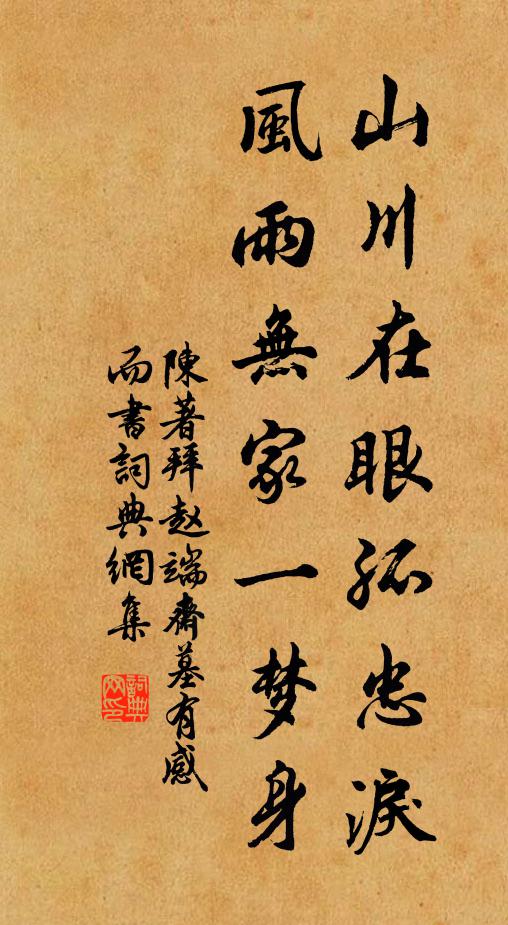 山川在眼孤忠淚
風雨無家一梦身
陳著拜赵端齋墓有感
而書詞典網集
詞典網印